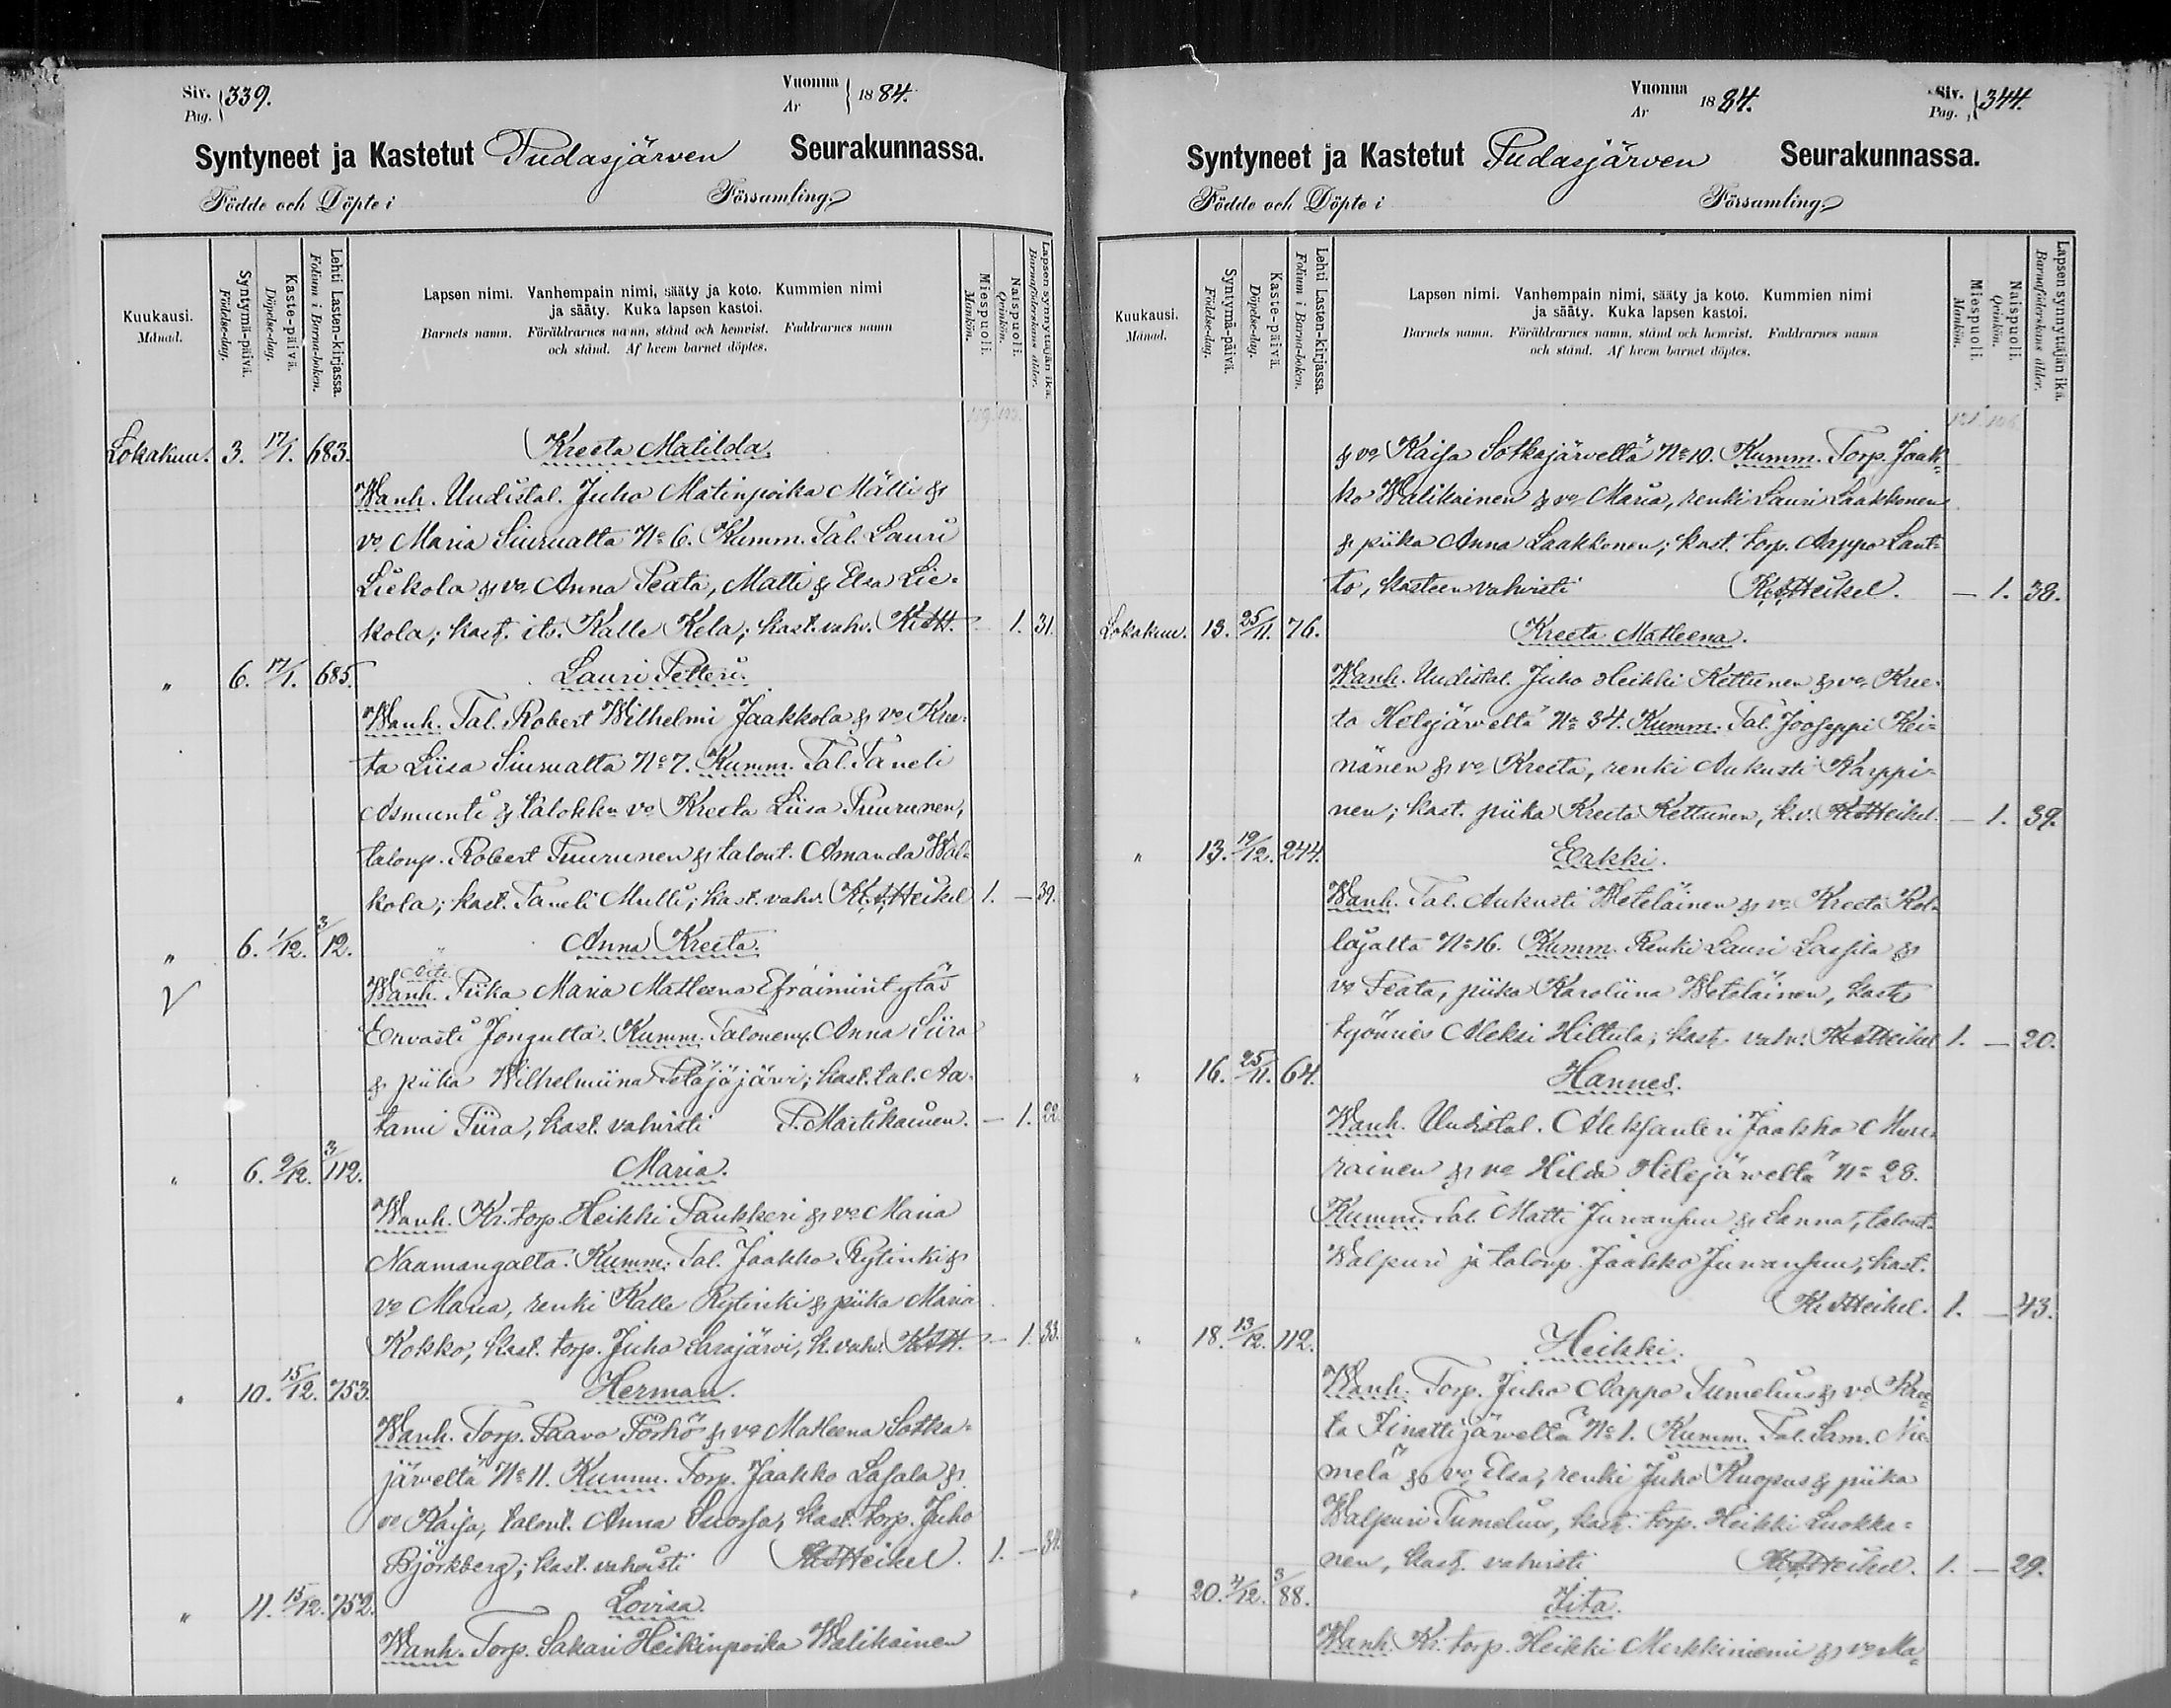 Siv. Pag. 339.
Vuonna År 1884.
Syntyneet ja Kastetut Pudasjärven Seurakunnassa.
Födde och Döpte i Församling.
Kuukausi. Månad.
Syntymä-päivä. Födelse-dag.
Kaste-päivä. Döpelse-dag.
Lehti Lasten-kirjassa. Folium i Barna-boken.
Lapsen nimi. Vanhempain nimi, sääty ja koto. Kummien nimi
ja sääty. Kuka lapsen kastoi.
Barnets namn. Föräldrarnes namn, stånd och hemvist. Faddrarnes namn
och stånd. Af hvem barnet döptes.
Miespuoli. Mankön.
Naispuoli. Qvinkön.
Lapsen synnyttäjän ikä. Barnaföderskans ålder.
Lokakuu. 3. 17/1. 683. Kreeta Matilda.
Wanh. Uudistal. Juho Matinpoika Mälli &
vo Maria Siurualta No 6. Kumm. Tal. Lauri
Liekola & vo Anna Peata, Matti & Elsa Lie-
kola; kast. its. Kalle Kela; kast. vahv. K.A.H. 1. 31.
" 6. 17/1. 685. Lauri Petteri.
Wanh. Tal. Robert Wilhelmi Jaakkola & vo Kree-
ta Liisa Siurualta No 7. Kumm. Tal. Taneli
Asmunti & talokkn vo Kreeta Liisa Puurunen,
talonp. Robert Puurunen & talont. Amanda Wal-
kola; kast. Taneli Mulli; kast. vahv. K.A.Heikel 1. — 39.
" 6. 1/12. 3/12. Anna Kreeta.
Äiti
V Wanh. Piika Maria Matleena Efraimintytär
Ervasti Jongulta. Kumm. Talonem. Anna Siira
& piika Wilhelmiina Petäjäjärvi; kast. tal. Aa-
tami Piira, kast. vahvisti P. Martikainen. — 1. 22.
" 6. 9/12. 3/112. Maria.
Wanh. Kr. torp. Heikki Paukkeri & vo Maria
Naamangalta. Kumm. Tal. Jaakko Rytinki &
vo Maria, renki Kalle Rytinki & piika Maria
Kokko, kast. torp. Juho Sarajärvi, k. vahv. K.A.H. — 1. 33.
" 10. 15/12. 753. Herman.
Wanh. Torp. Paavo Pörhö & vo Matleena Sotka-
järveltä No 11. Kumm. Torp. Jaakko Lasala &
vo Kaisa, talont. Anna Suorsa, kast. torp. Juho
Björkberg; kast. vahvisti K.A.Heikel. 1. — 34.
" 11. 15/12. 752. Lovisa.
Wanh. Torp. Sakari Heikinpoika Wälikainen
Vuonna År 1884.
Siv. Pag. 344.
Syntyneet ja Kastetut Pudasjärven Seurakunnassa.
Födde och Döpte i Församling.
Kuukausi. Månad.
Syntymä-päivä. Födelse-dag.
Kaste-päivä. Döpelse-dag.
Lehti Lasten-kirjassa. Folium i Barna-boken.
Lapsen nimi. Vanhempain nimi, sääty ja koto. Kummien nimi
ja sääty. Kuka lapsen kastoi.
Barnets namn. Föräldrarnes namn, stånd och hemvist. Faddrarnes namn
och stånd. Af hvem barnet döptes.
Miespuoli. Mankön.
Naispuoli. Qvinkön.
Lapsen synnyttäjän ikä. Barnaföderskans ålder.
& vo Kaisa Sotkajärveltä No 10. Kumm. Torp. Jaak-
ko Wälikainen & vo Maria, renki Lauri Laakkonen
& piika Anna Laakkonen; kast. torp. Aappo Lant-
to, kasteen vahvisti K.A.Heikel. — 1. 38.
Lokakuu. 13. 25/11. 76. Kreeta Matleena.
Wanh. Uudistal. Juho Heikki Kettunen & vo Kree-
ta Hetejärveltä No 34. Kumm. Tal. Jooseppi Hei-
nänen & vo Kreeta, renki Aukusti Karppi-
nen; kast. piika Kreeta Kettunen, k.v. K.A.Heikel. — 1. 39.
" 13. 19/12. 244. Erkki.
Wanh. Tal. Aukusti Weteläinen & vo Kreeta Kol-
lajalta No 16. Kumm. Renki Lauri Lassila &
vo Peata, piika Karoliina Weteläinen, kast.
työmies Aleksi Hiltula; kast. vahv. K.A.Heikel 1. — 20.
" 16. 25/11. 64. Hannes.
Wanh. Uudistal. Aleksanteri Jaakko Muu-
rainen & vo Hilda Hetejärveltä No 28.
Kumm. Tal. Matti Jurvansuu & Sanna, talont.
Walpuri ja talonp. Jaakko Jurvansuu, kast.
K.A.Heikel. 1. — 43.
" 18. 13/12. 112. Heikki.
Wanh. Torp. Juho Aappo Tumelius & vo Kree-
ta Iinattijärveltä No 1. Kumm. Tal. Sam. Nie-
melä & vo Elsa, renki Juho Kuopus & piika
Walpuri Tumelius, kast. torp. Heikki Luokka-
nen, kast. vahvisti K.A.Heikel. 1. — 29.
" 20. 4/12. 3/88. Iita.
Wanh. Kr. torp. Heikki Merkkiniemi & vo Ma-